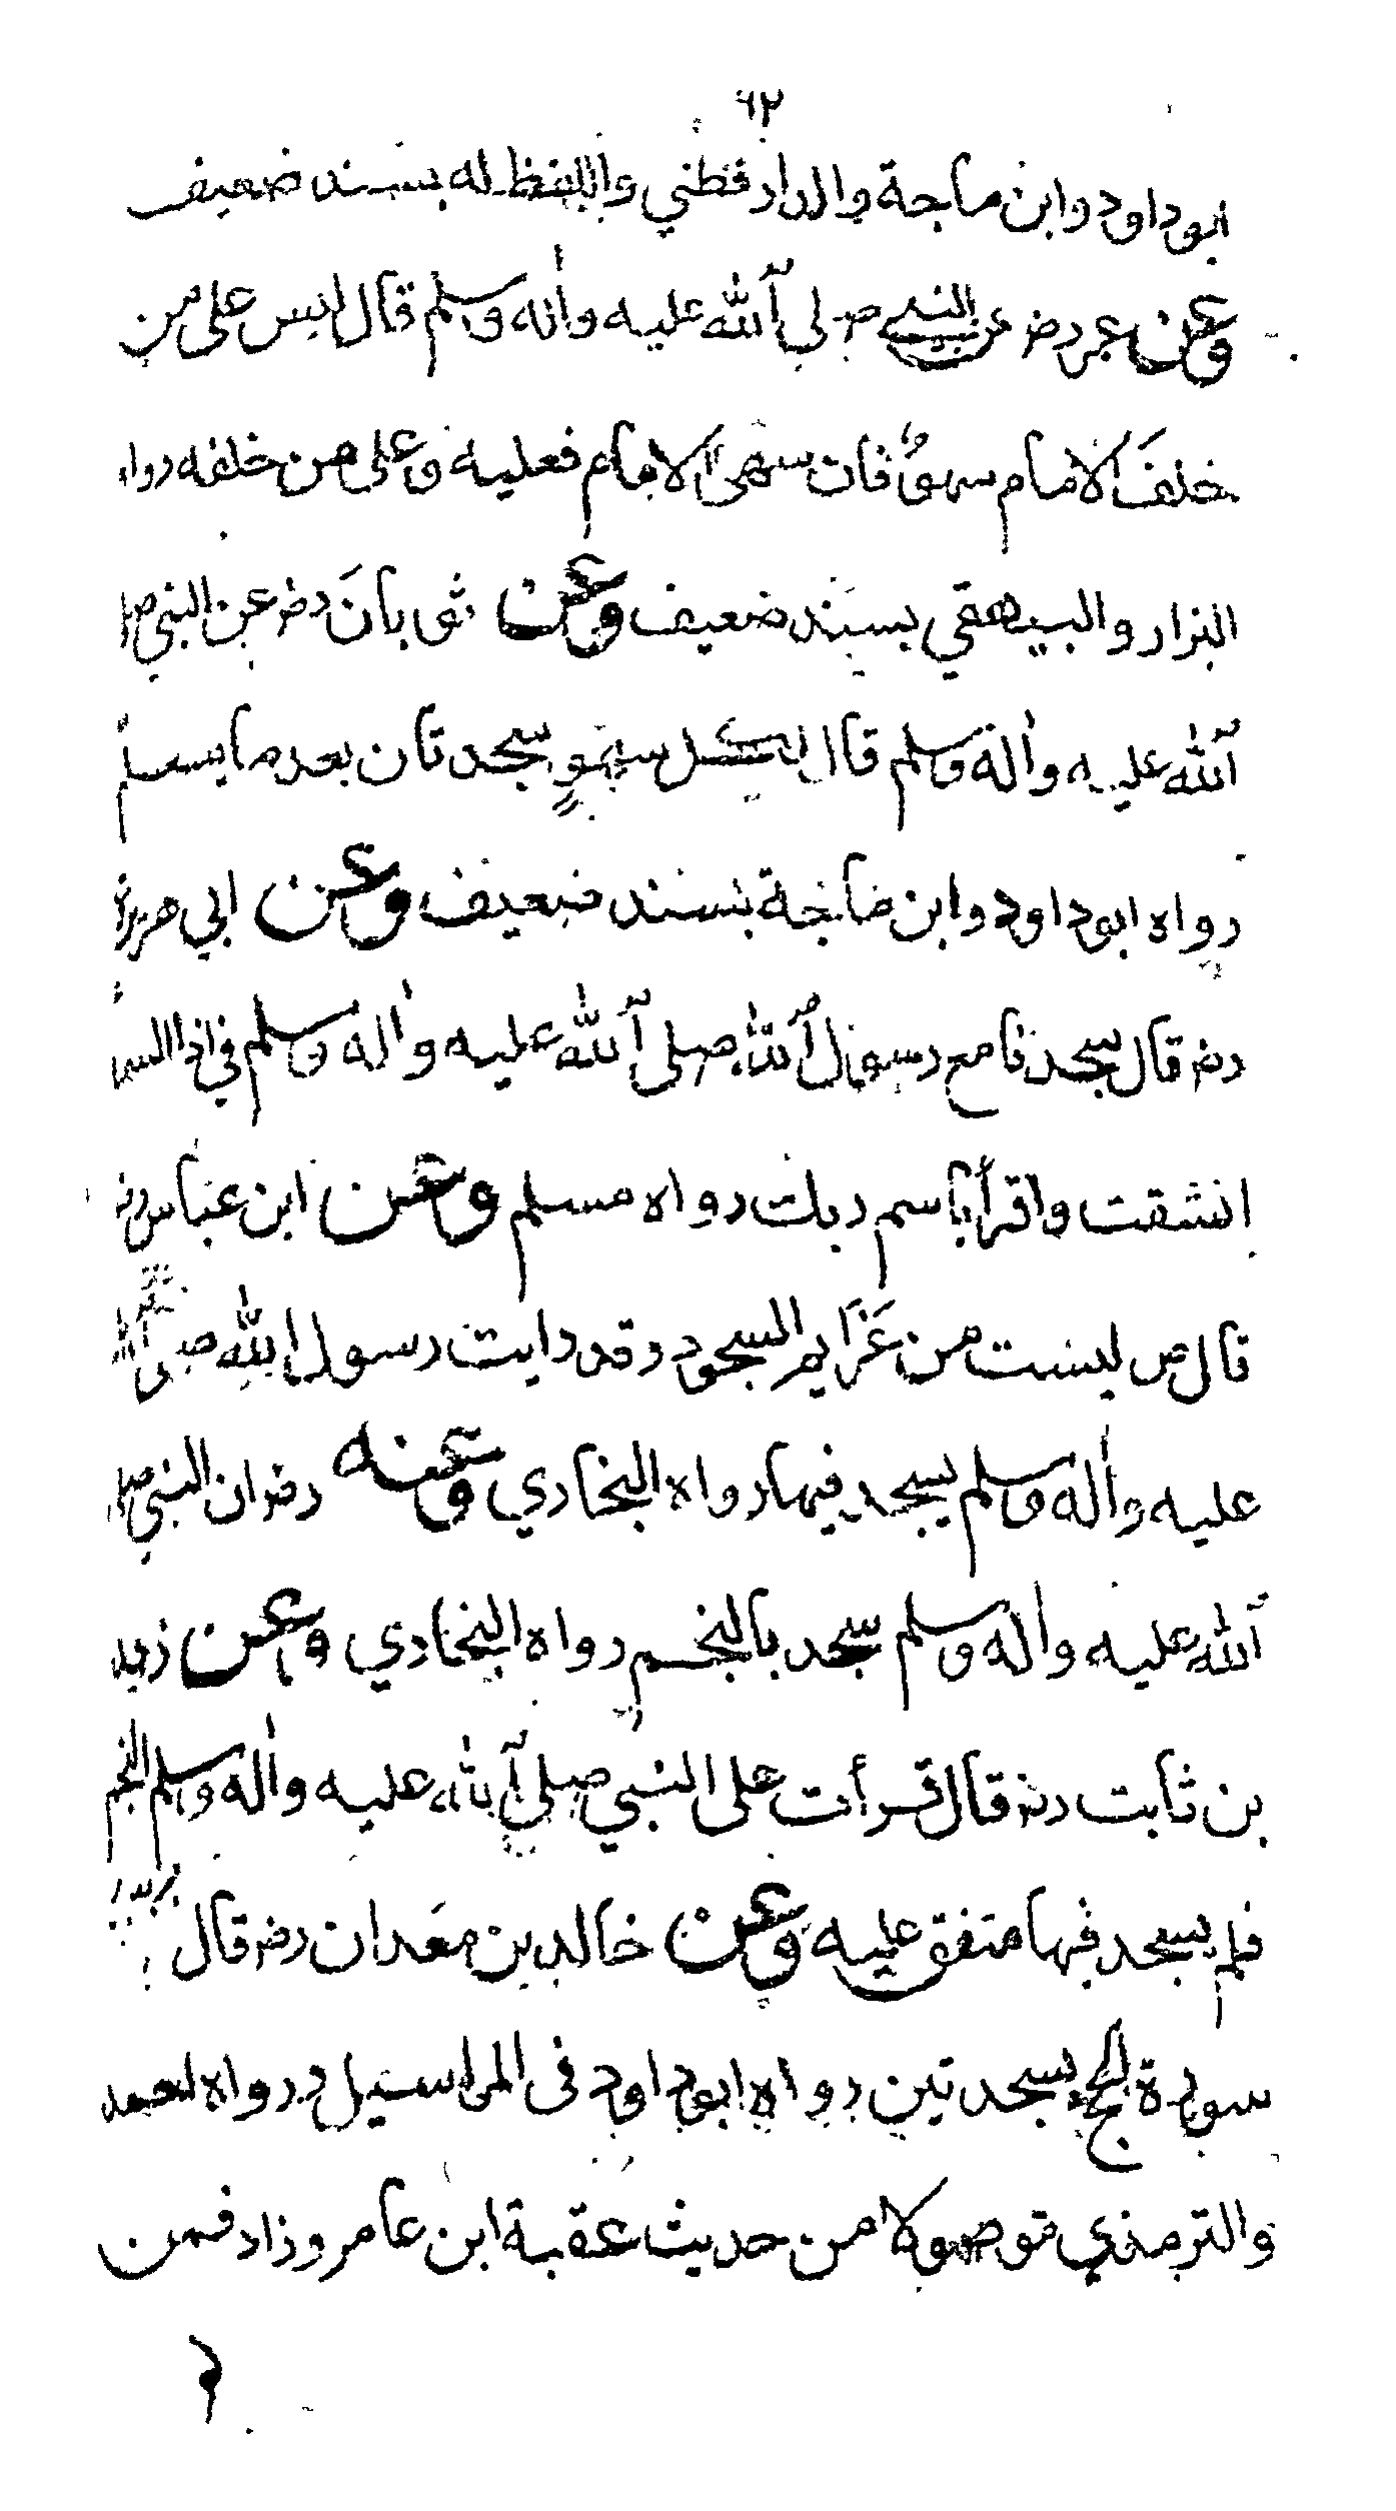 ٦٢
ابو داود وابن ماجة والدارقطني واللفظ له بسند ضعيف
وعن عمر رضـ عن النبي صلى ٱلله عليه وٰاله وسلم قال ليس على من
خلفَ الامام سهوٌ فان سهىٰ الامام فعليه وعلى من خلفه رواه
البزار والبيهقي بسند ضعيف وعن ثوبانَ رضـ عن النبي صلى
ٱلله عليه وٰاله وسلم قال لكل سهوٍ سجدتان بعد ما يسلم
رواه ابو داود وابن ماجة بسند ضعيف وعن ابي هريرة
رضـ قال سجدنا مع رسول ٱلله صلى ٱلله عليه وٰاله وسلم في اذا السماء
انشقت واقرأ باسم ربك رواه مسلم وعن ابن عباس رضـ
قال ص ليست من عَزَايم السجود وقد رايت رسول الله صلى ٱلله
عليه وٰاله وسلم يسجد فيها رواه البخاري وعنه رضـ ان النبي صلى
ٱلله عليه وٰاله وسلم سجد بالنجم رواه البخاري وعن زيد
بن ثابت رضـ قال قرأت على النبي صلى ٱلله عليه وٰاله وسلم النجم
فلم يسجد فيها متفق عليه وعن خالد بن معَدان رضـ قال
سورة الحج بسجدتين رواه ابو داود فى المراسيل ورواه احمد
والترمذي موصولا من حديث عقبة ابن عامر وزاد فمن